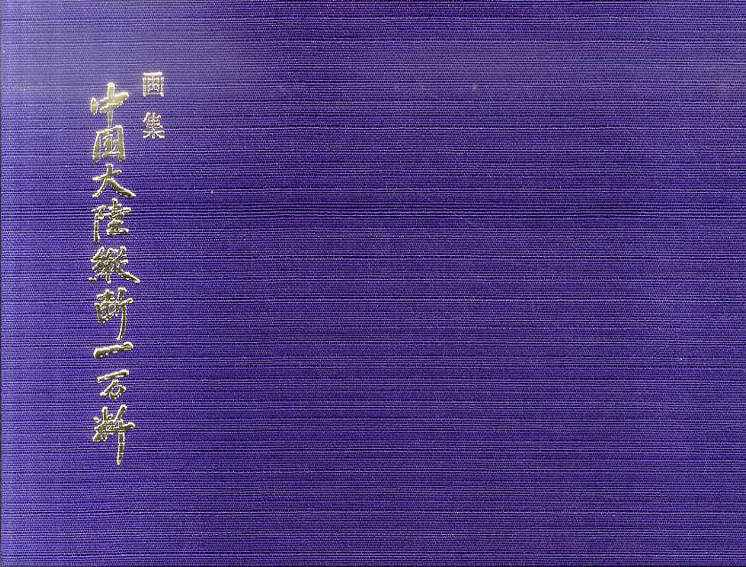 画集
中国大陸縦断一石斛